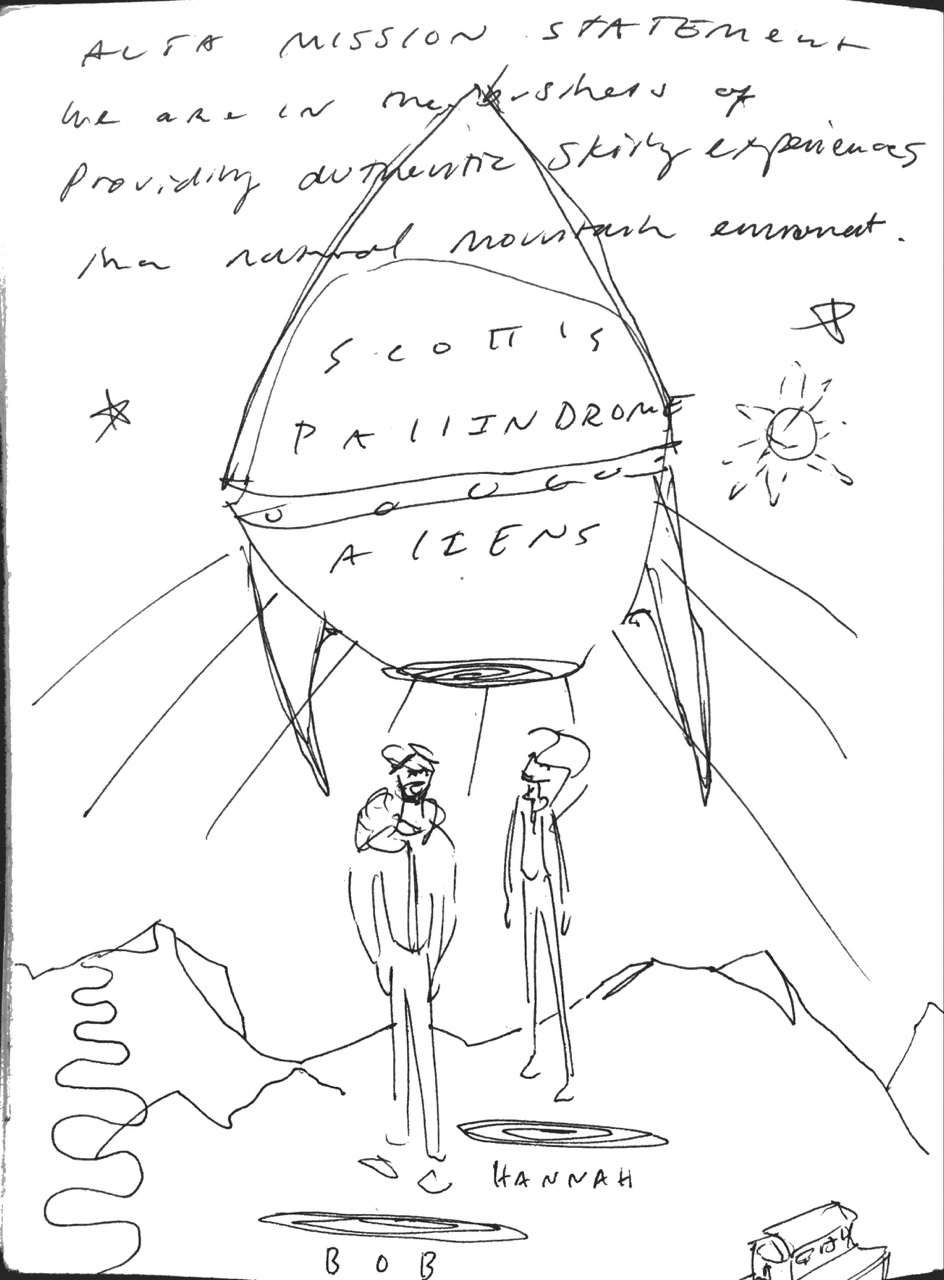 ALTA MISSION STATEMENT
We are in the business of
Providing authentic skiing experiences
in a natural mountain enviroment.
SCOTT'S
PALLINDROME
ALIENS
HANNAH
BOB